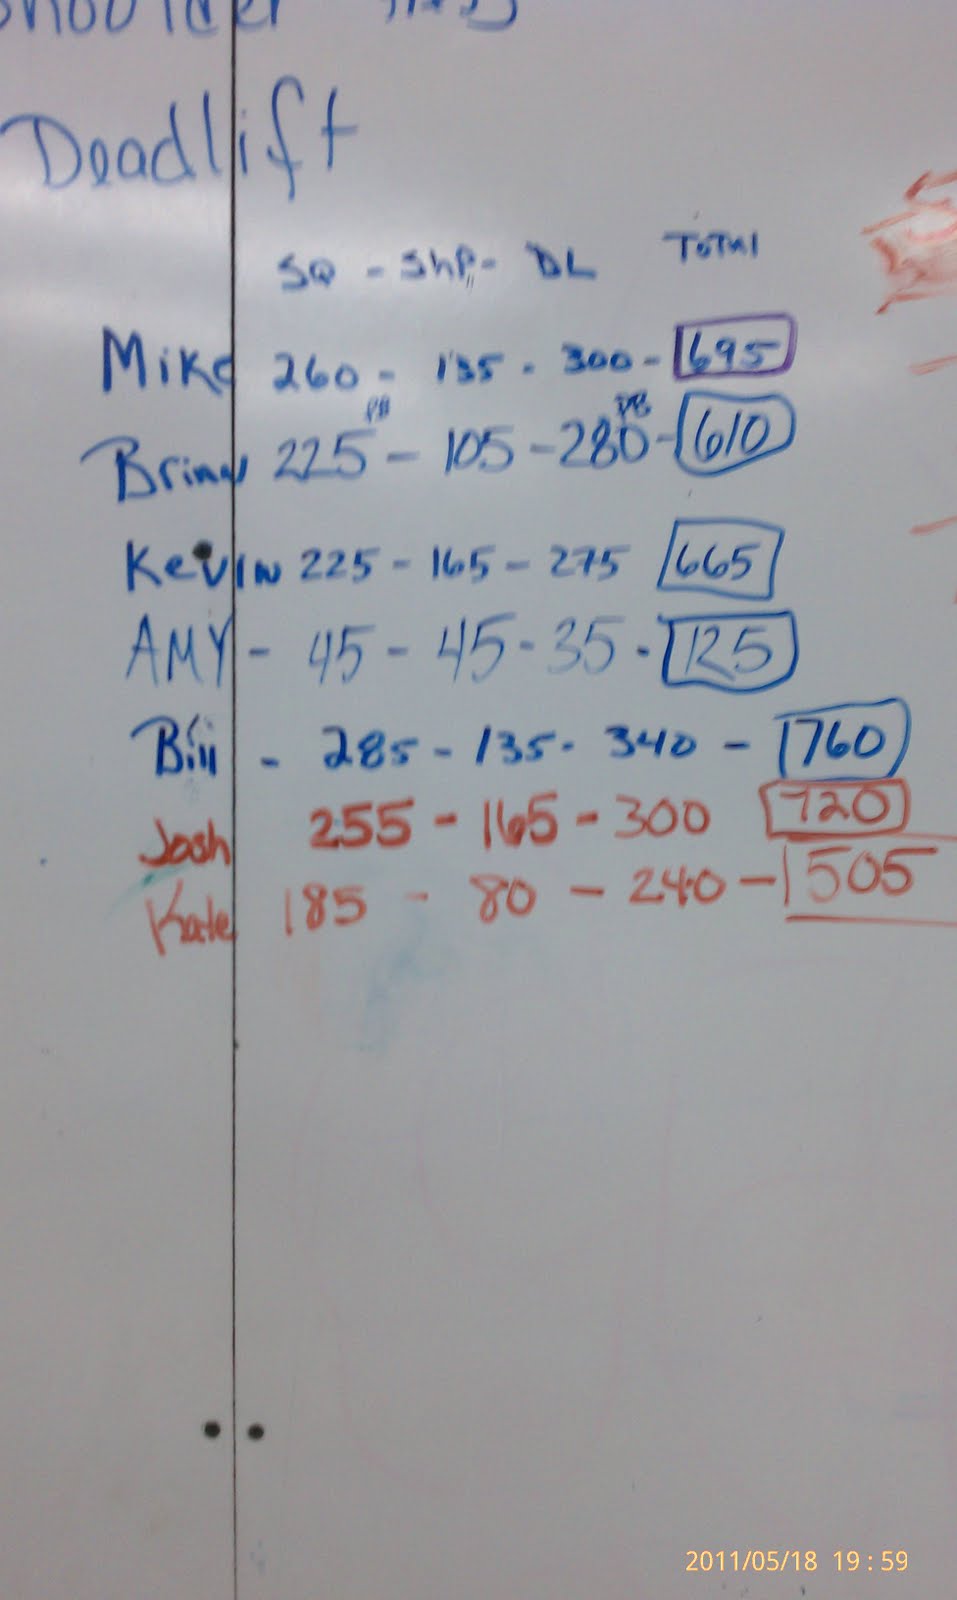 Shoulder
Deadlift
SQ - ShP - DL TOTAL
Mike 260 - 135 - 300 - 695
PB PB
Brian 225 - 105 - 280 - 610
Kevin 225 - 165 - 275 665
AMY - 45 - 45 - 35 - 125
Bill - 285 - 135 - 340 - 760
Josh 255 - 165 - 300 720
Kate 185 - 80 - 240 - 505
2011/05/18 19:59